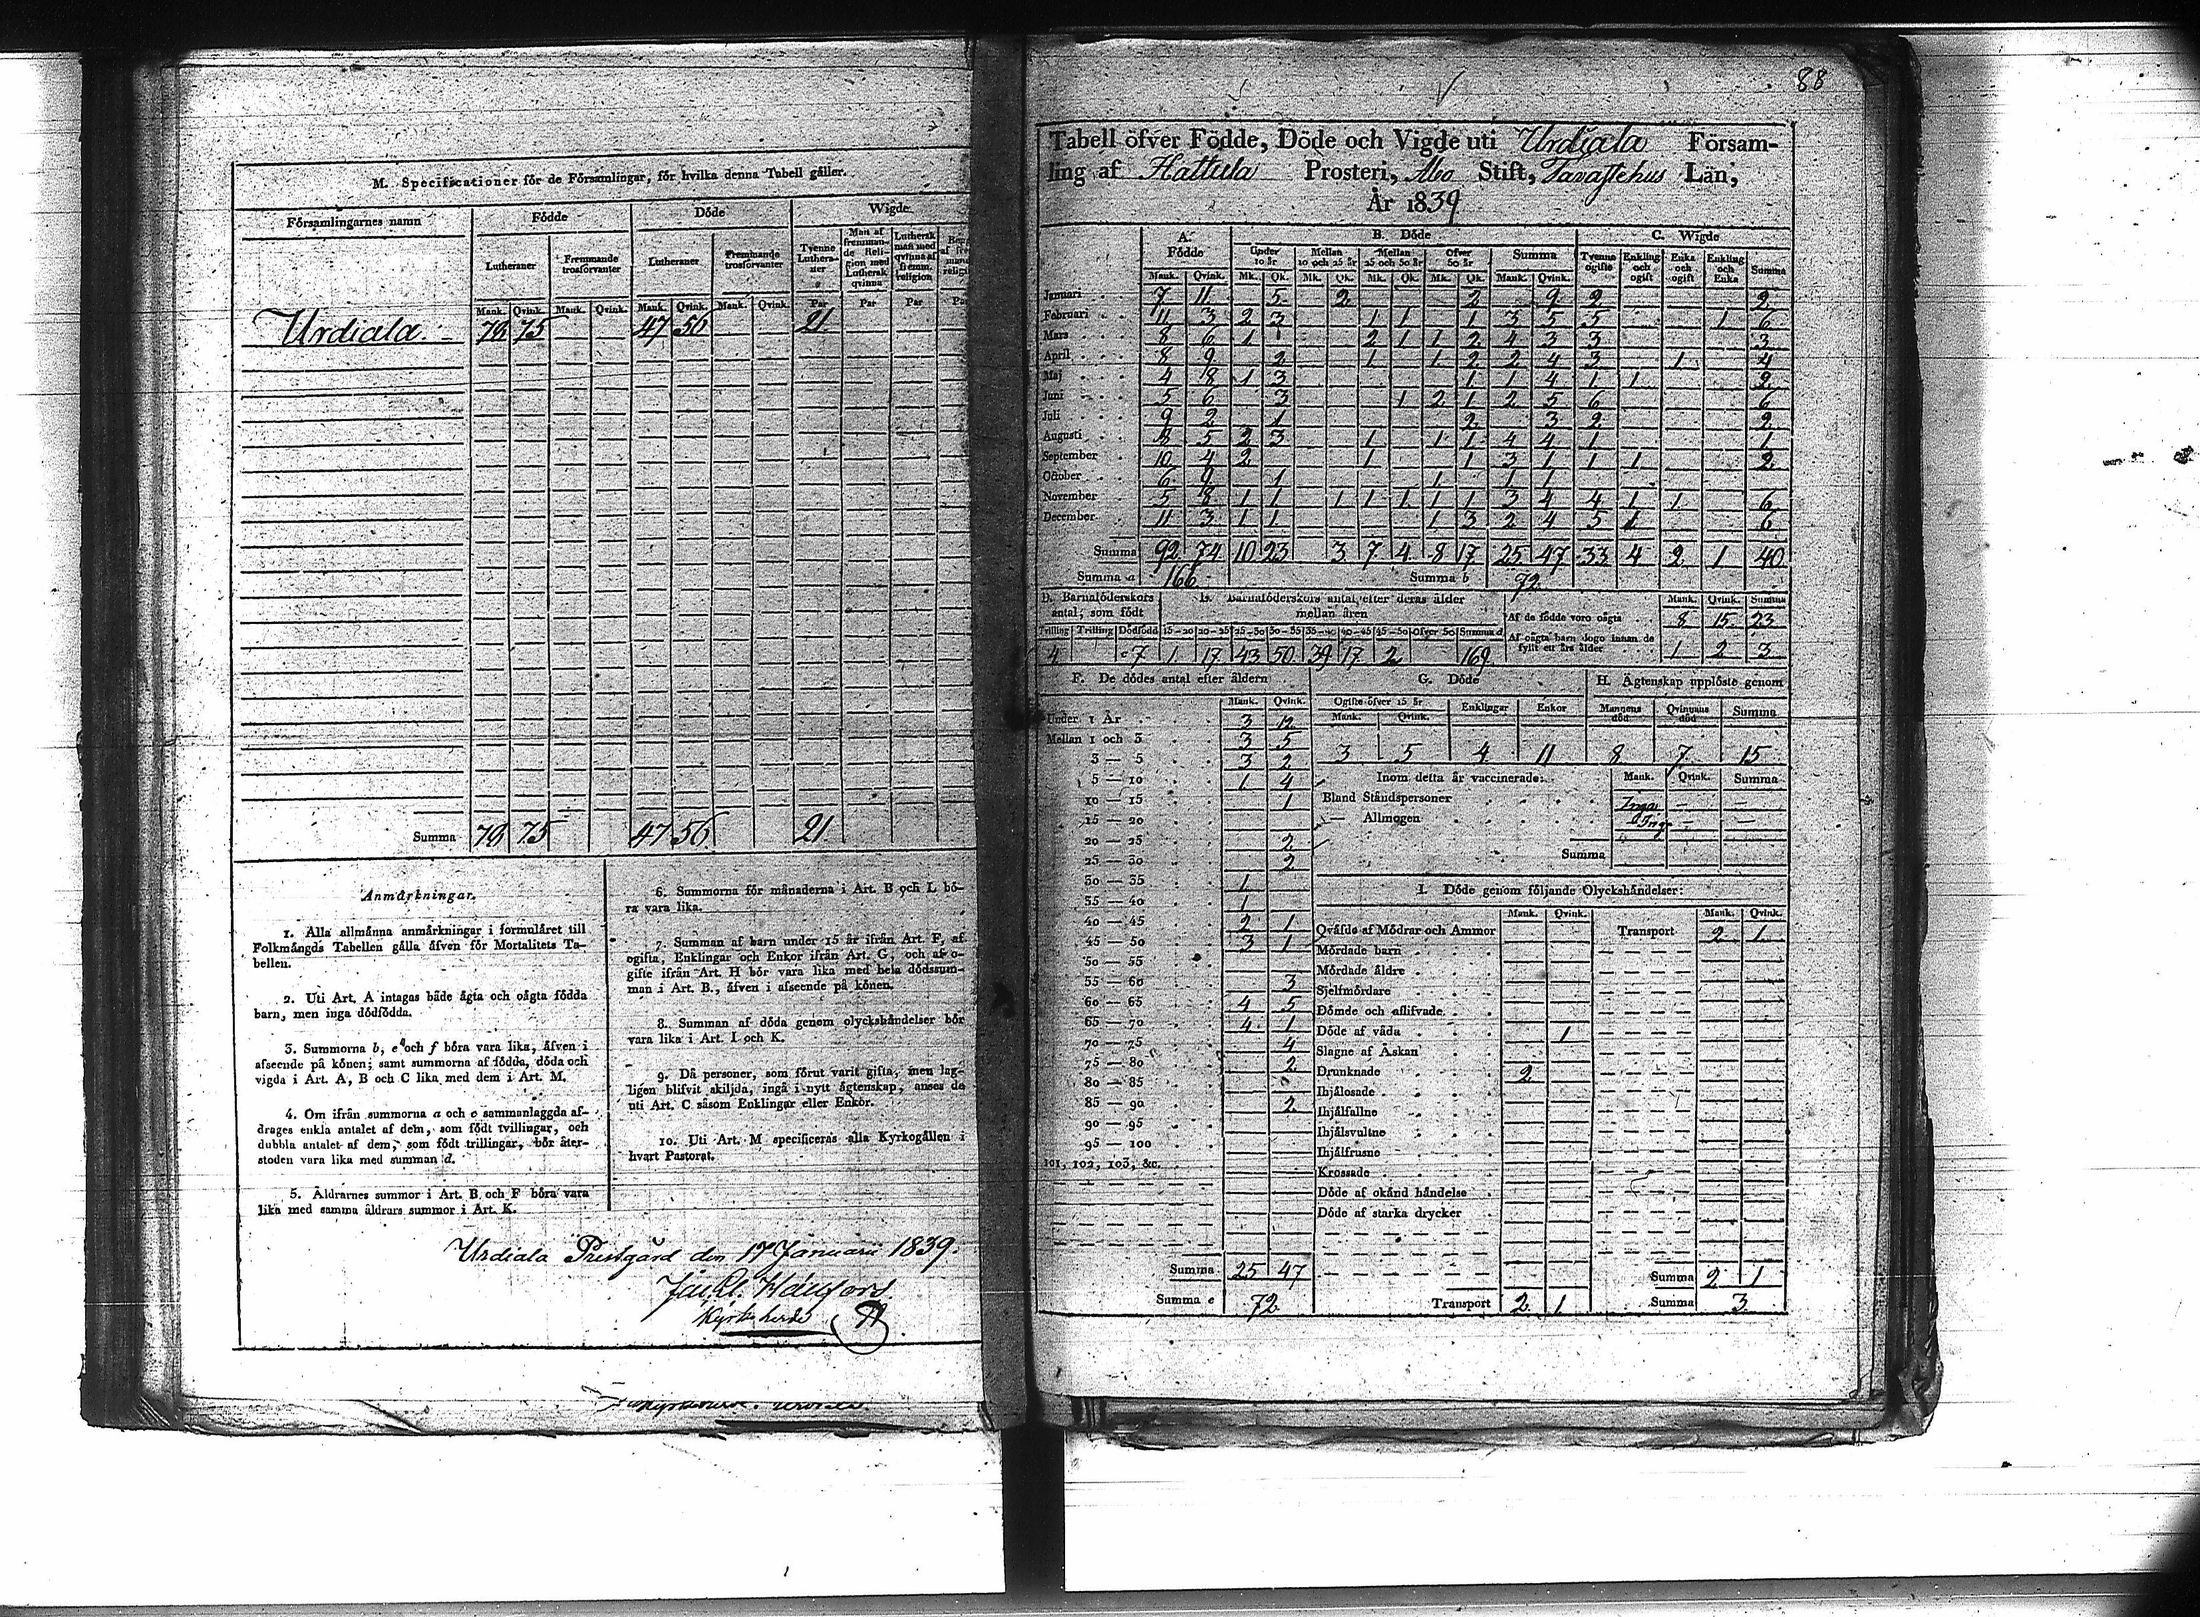 M. Specificationer för de Församlingar, för hvilka denna Tabell gäller.
Församlingarnes namn Födde Döde Wigde
Lutheraner Fremmande trosförvanter Lutheraner Fremmande trosförvanter Tvenne Lutheraner Man af fremmande Religion med Luthersk qvinna Luthersk man med qvinna af fremm. religion
Mank. Qvink. Mank. Qvink. Mank. Qvink. Mank. Qvink. Par Par Par
Urdiala. 79 75 47 56 21
Summa 79 75 47 56 21
Anmärkningar.
1. Alla allmänna anmärkningar i formuläret till
Folkmängds Tabellen gälla äfven för Mortalitets Ta-
bellen.
2. Uti Art. A intagas både ägta och oägta födda
barn, men inga dödfödda.
3. Summorna b, e och f böra vara lika, äfven i
afseende på könen; samt summorna af födda, döda och
vigda i Art. A, B och C lika med dem i Art. M.
4. Om ifrån summorna a och c sammanlaggda af-
drages enkla antalet af dem, som födt tvillingar, och
dubbla antalet af dem, som födt trillingar, bör åter-
stoden vara lika med summan d.
5. Äldrarnes summor i Art. B och F böra vara
lika med samma äldrars summor i Art. K.
6. Summorna för månaderna i Art. B och L bö-
ra vara lika.
7. Summan af barn under 15 år ifrån Art. F, af
ogifta, Enklingar och Enkor ifrån Art. G, och af
gifte ifrån Art. H bör vara lika med hela dödssum-
man i Art. B., äfven i afseende på könen.
8. Summan af döda genom olyckshändelser bör
vara lika i Art. I och K.
9. Då personer, som förut varit gifta, men lag-
ligen blifvit skiljda, ingå i nytt ägtenskap, anses de
uti Art. C såsom Enklingar eller Enkor.
10. Uti Art. M specificeras alla Kyrkogällen i
hvart Pastorat.
Urdiala Prestgård den 17 Januarii 1839.
Kyrkoherde
88
Tabell öfver Födde, Döde och Vigde uti Urdiala Försam-
ling af Hattula Prosteri, Åbo Stift, Tavastehus Län,
År 1839
A. Födde B. Döde C. Wigde
Under 10 år Mellan 10 och 25 år Mellan 25 och 50 år Öfver 50 år Summa Tvenne ogifte Enkling och ogift Enka och ogift Enkling och Enka Summa
Mank. Qvink. Mk. Qk. Mk. Qk. Mk. Qk. Mk. Qk. Mank. Qvink.
Januari 7 11 5 2 2 9 2 2
Februari 11 3 2 3 1 1 1 3 5 5 1 6
Mars 8 6 1 2 1 1 2 4 3 3 3
April 8 9 2 1 1 2 2 4 3 1 4
Maj 4 8 1 3 1 1 4 1 1 2
Juni 5 6 3 1 2 1 2 5 6 6
Juli 9 2 1 2 3 2 2
Augusti 8 5 2 3 1 1 1 4 4 1 1
September 10 4 2 1 1 3 1 1 1 2
October 6 9 1 1 1 1
November 5 8 1 1 1 1 1 1 1 3 4 4 1 1 6
December 11 3 1 1 1 3 2 4 5 1 6
Summa 92 74 10 23 3 7 4 8 17 25 47 33 4 2 1 40
Summa a 166 Summa b 72
D. Barnaföderskors antal, som födt
E. Barnaföderskors antal, efter deras ålder mellan åren
Tvilling Trilling Dödfödd 15—20 20—25 25—30 30—35 35—40 40—45 45—50 Öfver 50 Summa d
4 c 7 1 17 43 50 39 17 2 169
Mank. Qvink. Summa
Af de födde voro oägta 8 15 23
Af oägta barn dogo innan de fyllt ett års ålder 1 2 3
F. De dödes antal efter åldern
Mank. Qvink.
Under 1 År 3 12
Mellan 1 och 3 3 5
3 — 5 3 2
5 — 10 1 4
10 — 15 1
15 — 20
20 — 25 2
25 — 30 2
30 — 35 1
35 — 40 1
40 — 45 2 1
45 — 50 3 1
50 — 55
55 — 60 3
60 — 65 4 5
65 — 70 4 1
70 — 75 4
75 — 80 2
80 — 85
85 — 90 2
90 — 95
95 — 100
101, 102, 103, &c.
Summa 25 47
Summa e 72
G. Döde
Ogifte öfver 15 år Enklingar Enkor
Mank. Qvink.
3 5 4 11
H. Ägtenskap upplöste genom
Mannens död Qvinnans död Summa
8 7 15
Inom detta år vaccinerade: Mank. Qvink. Summa
Bland Ståndspersoner Inga
— Allmogen Inga
Summa
I. Döde genom följande Olyckshändelser:
Mank. Qvink. Mank. Qvink.
Qväfde af Mödrar och Ammor Transport 2 1
Mördade barn
Mördade äldre
Sjelfmördare
Dömde och aflifvade
Döde af våda 1
Slagne af Åskan
Drunknade 2
Ihjälosade
Ihjälfallne
Ihjälsvultne
Ihjälfrusne
Krossade
Döde af okänd händelse
Döde af starka drycker
Summa 2 1
Transport 2 1 Summa 3